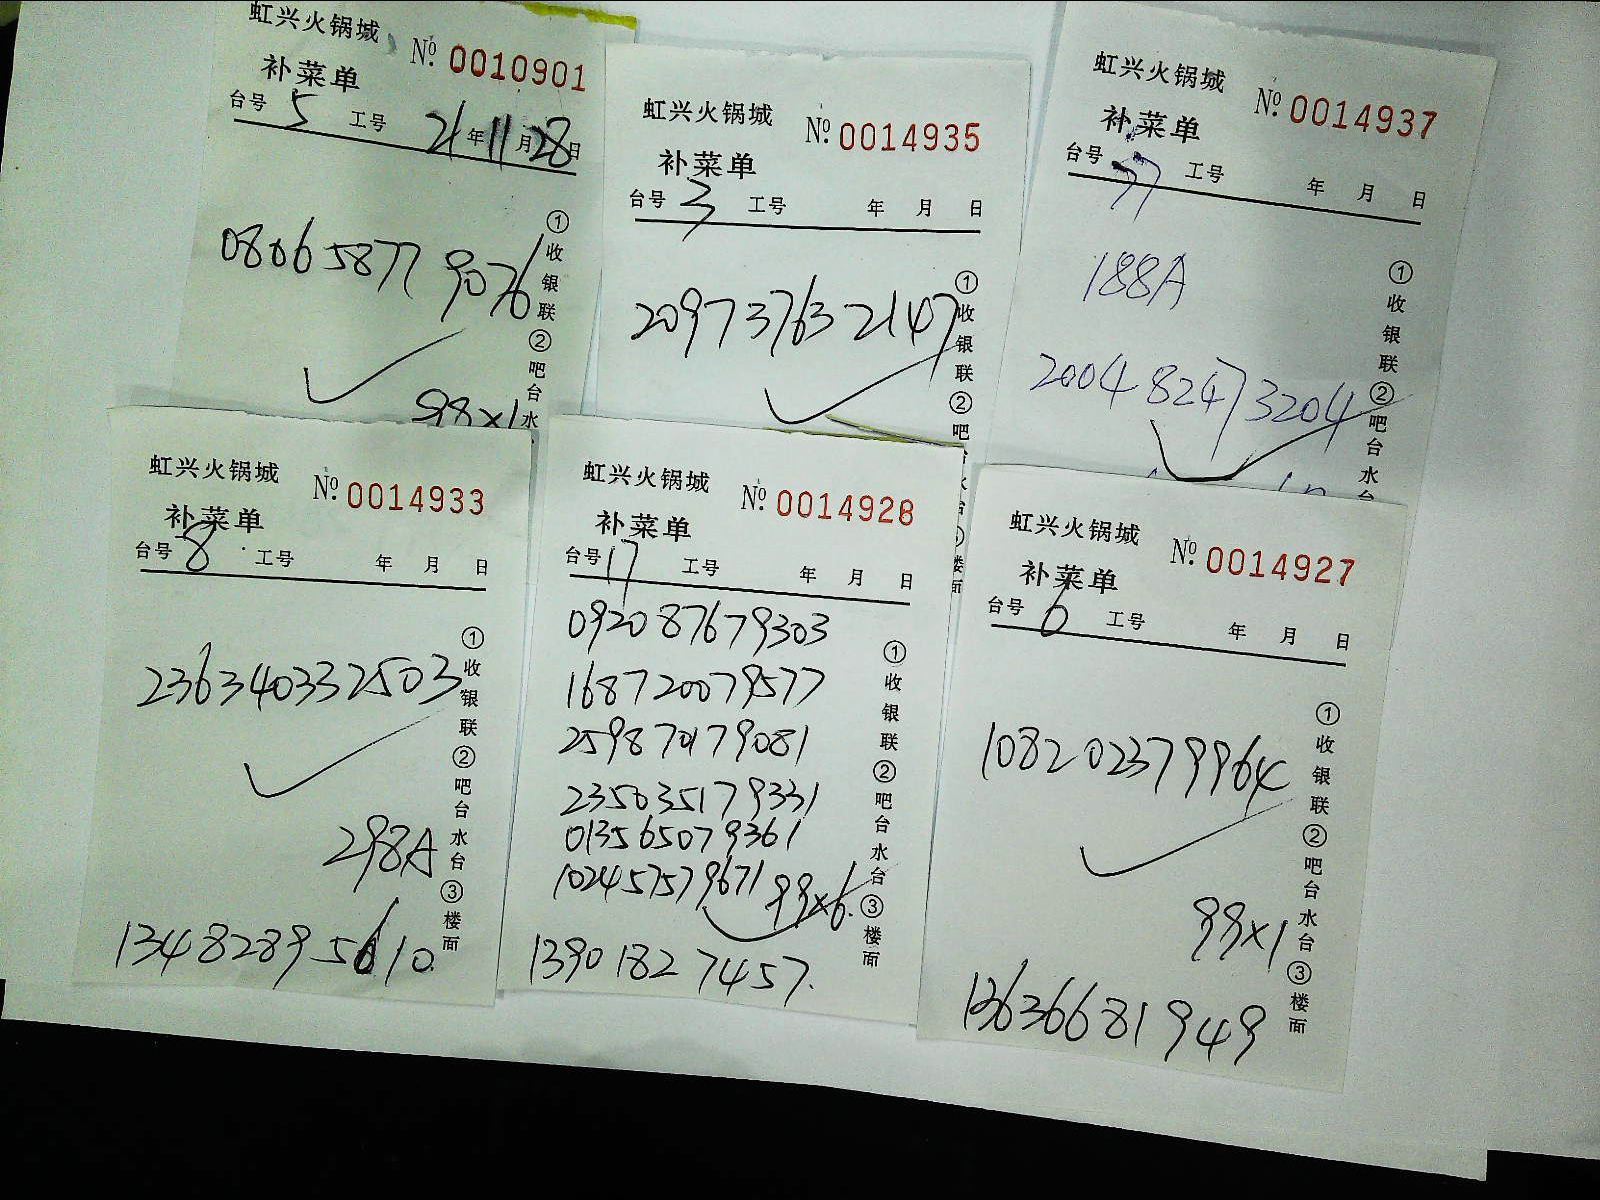 虹兴火锅城
№ 0010901
补菜单
台号 5 工号 21年11月28日
080658779076
98×1
①收银联②吧台水
虹兴火锅城
№ 0014935
补菜单
台号 3 工号 年 月 日
209737632147
①收银联②吧
水
台
楼面
虹兴火锅城
№ 0014937
补菜单
台号 77 工号 年 月 日
188A
200482473204
①收银联②吧台水台
虹兴火锅城
№ 0014933
补菜单
台号 8 工号 年 月 日
236340332503
298A
13482895610.
①收银联②吧台水台③楼面
虹兴火锅城
№ 0014928
补菜单
台号 17 工号 年 月 日
092087679303
168720079577
259870179081
235035179331
013565079361
102457579671
99×6.
13901827457.
①收银联②吧台水台③楼面
虹兴火锅城
№ 0014927
补菜单
台号 6 工号 年 月 日
108202379964
99×1
13636681949
①收银联②吧台水台③楼面